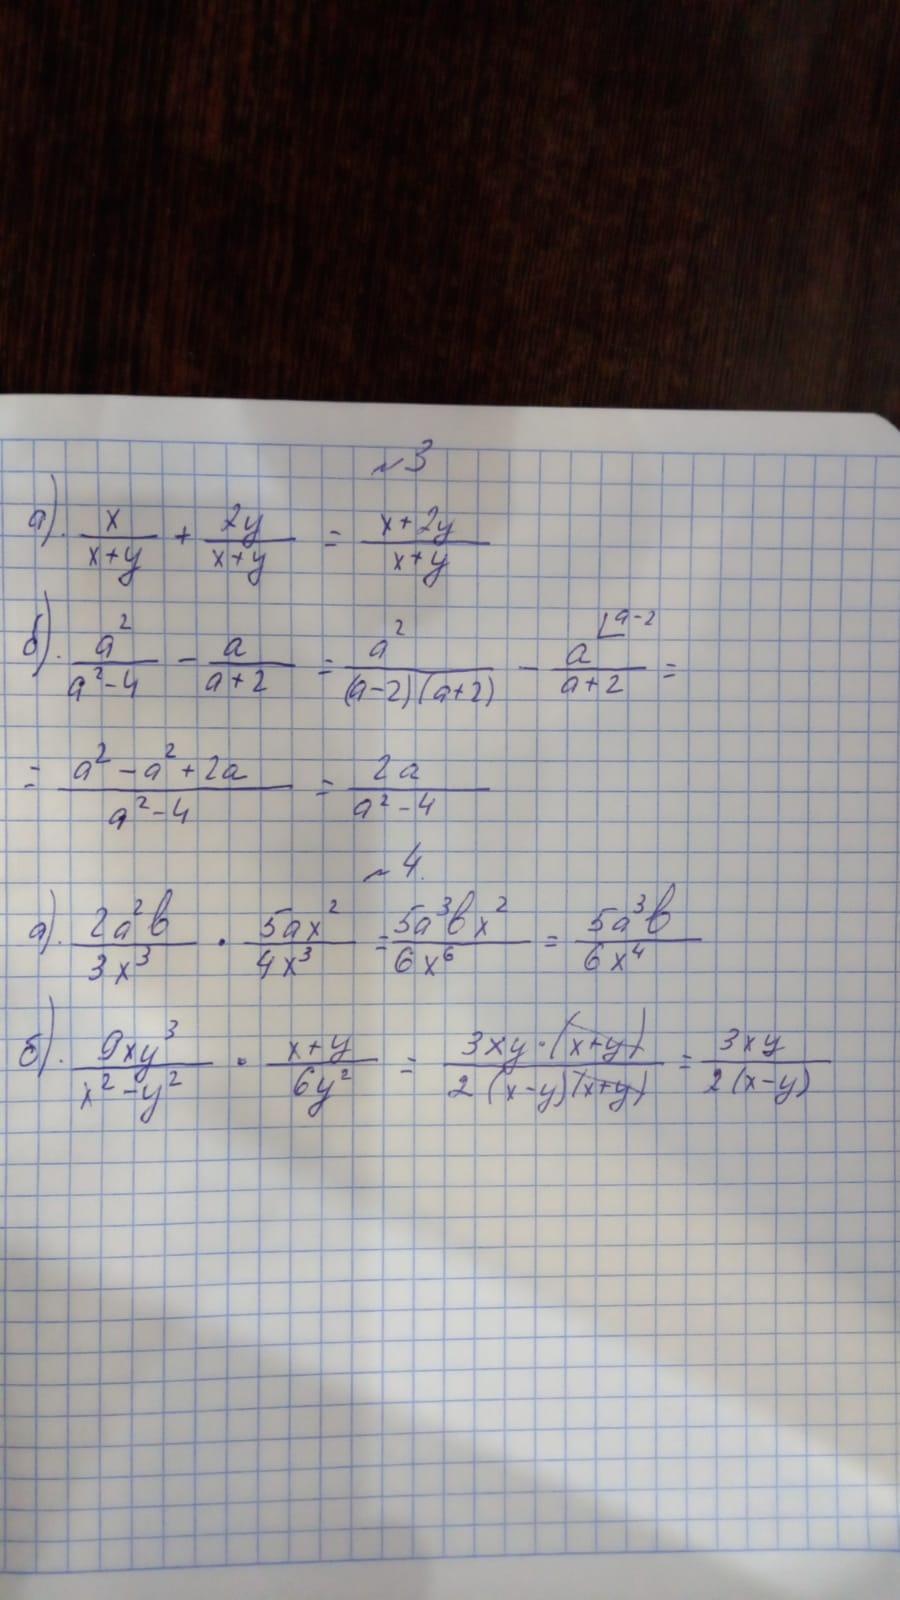 №3
а). x/(x+y) + 2y/(x+y) = (x+2y)/(x+y)
б). a²/(a²-4) - a/(a+2) = a²/((a-2)(a+2)) - a⌊a-2/(a+2) =
= (a²-a²+2a)/(a²-4) = 2a/(a²-4)
№4.
а). 2a²b/3x³ · 5ax²/4x³ = 5a³bx²/6x⁶ = 5a³b/6x⁴
б). 9xy³/(x²-y²) · (x+y)/6y² = 3xy·(x+y)/(2(x-y)(x+y)) = 3xy/(2(x-y))